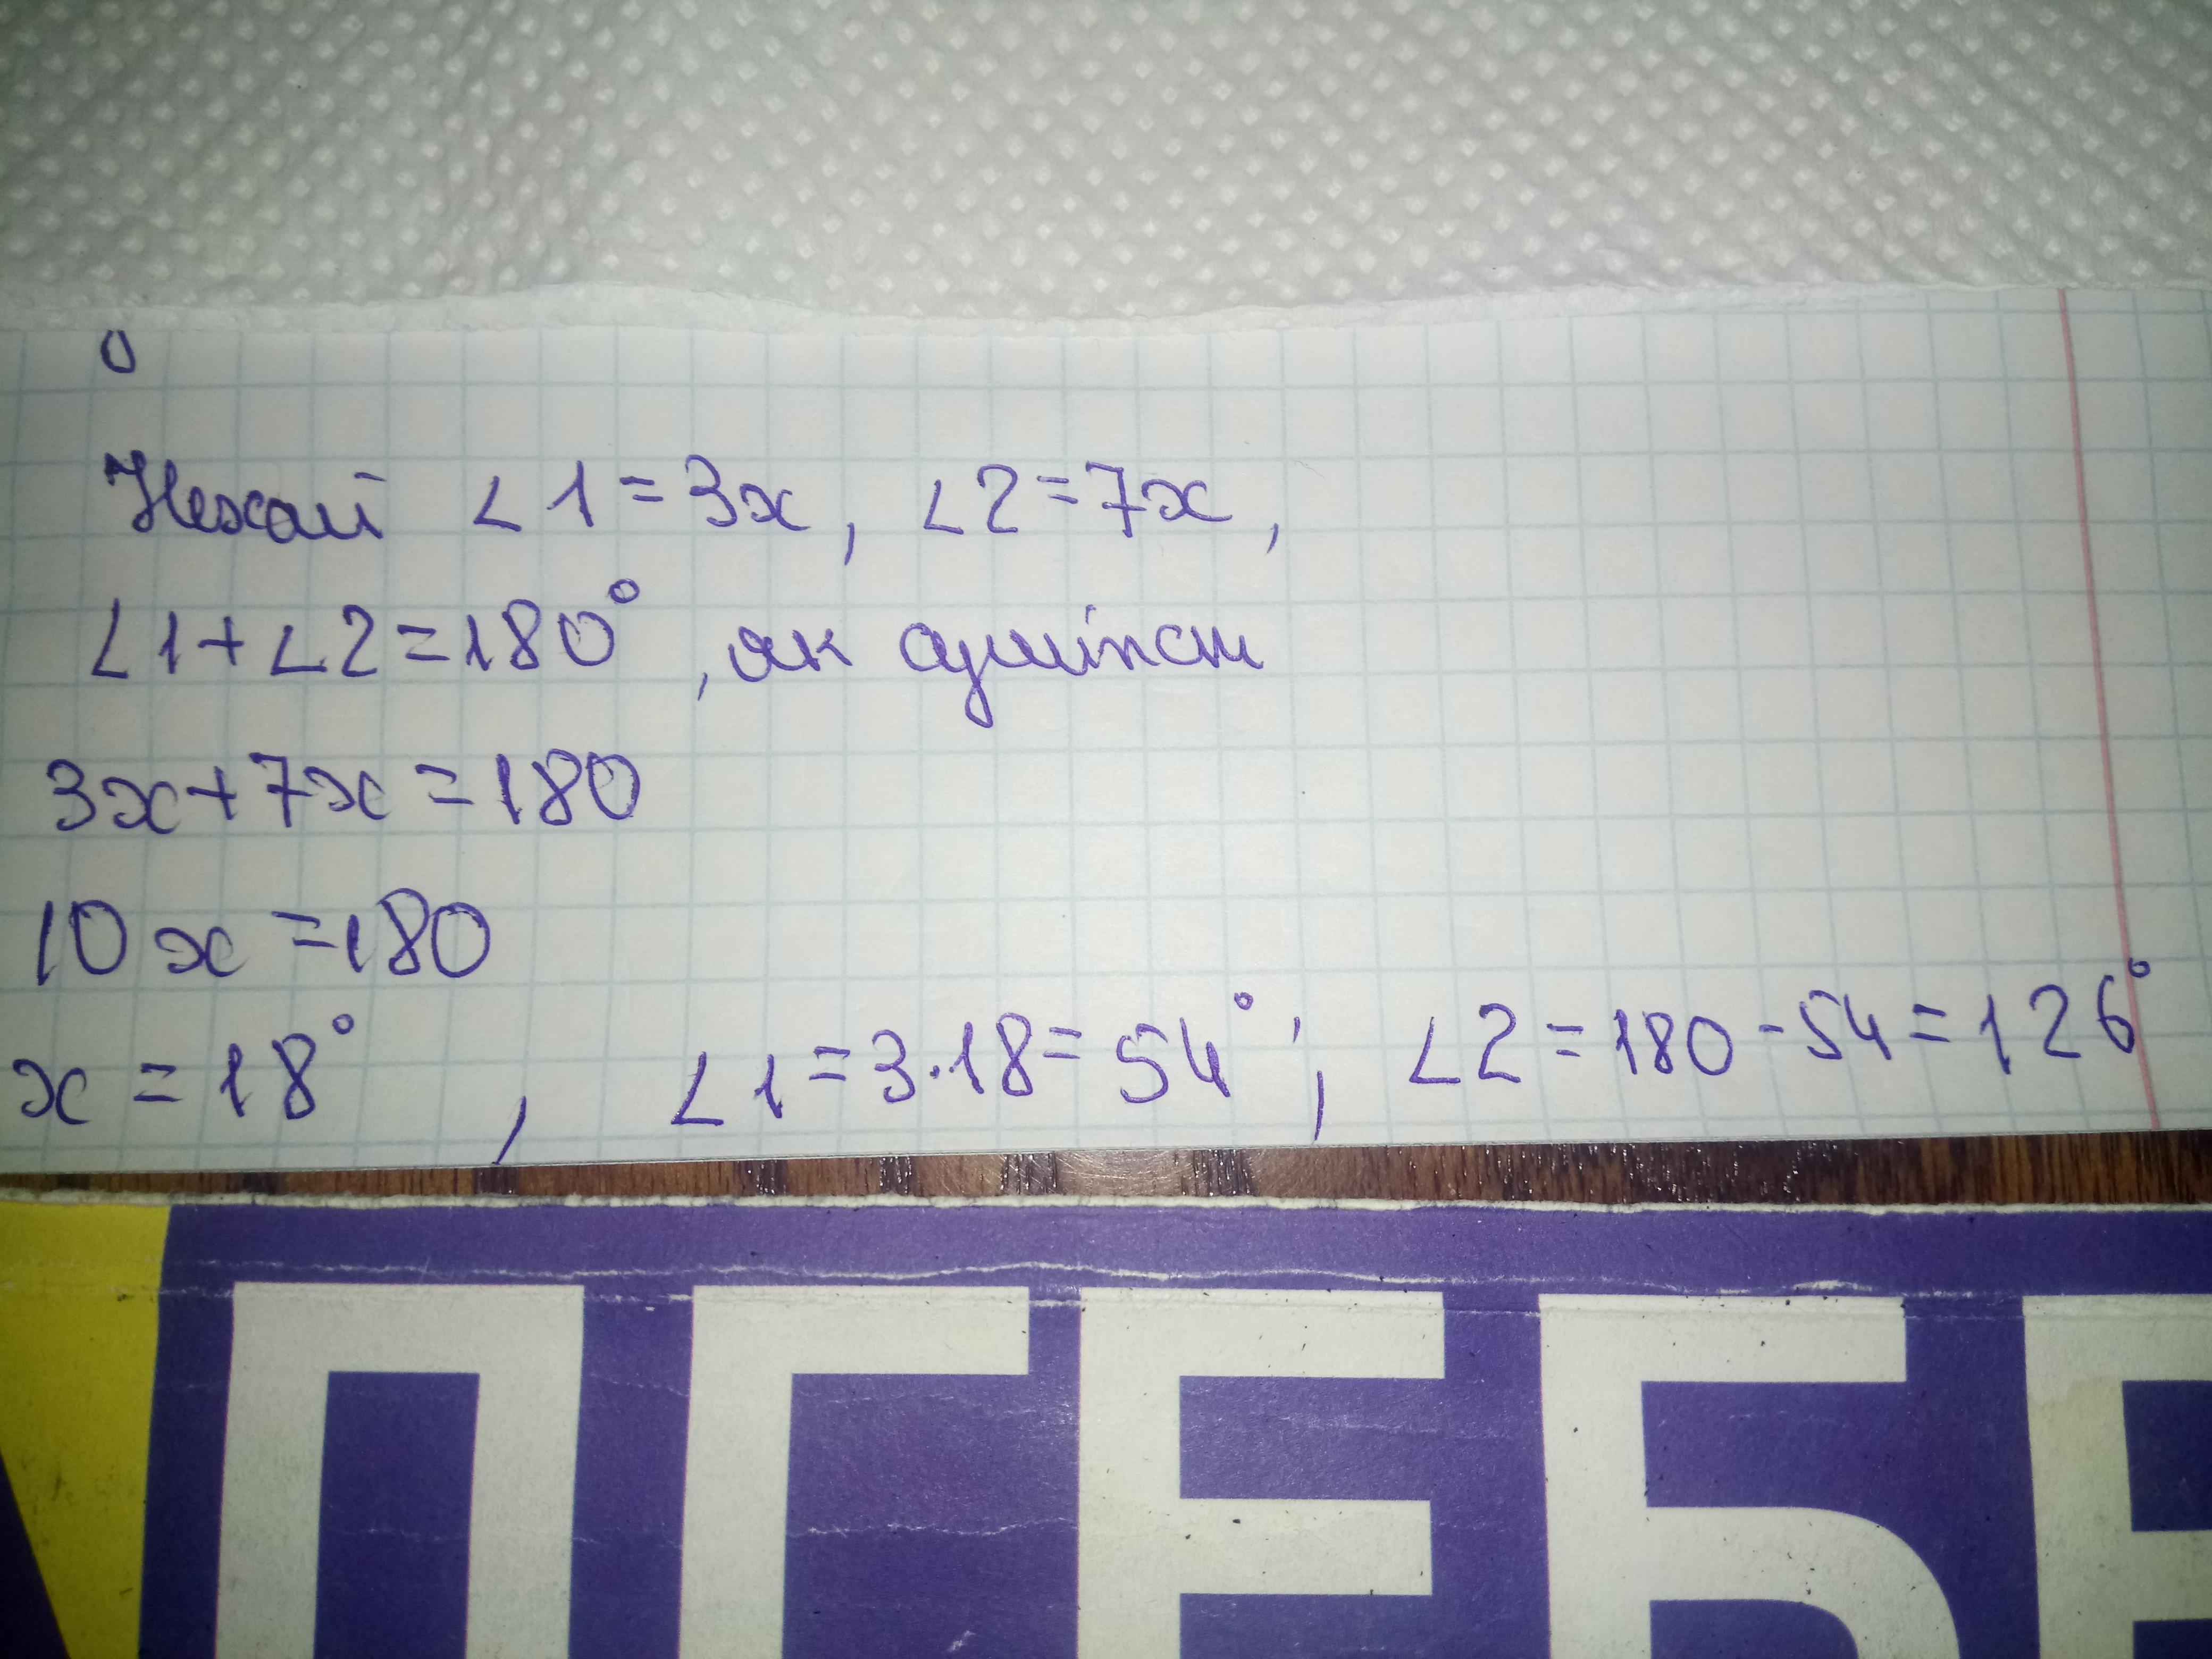 0
Нехай ∠1=3x, ∠2=7x,
∠1+∠2=180°, як суміжні
3x+7x=180
10x=180
x=18°, ∠1=3·18=54°; ∠2=180-54=126°
ЛГЕБР